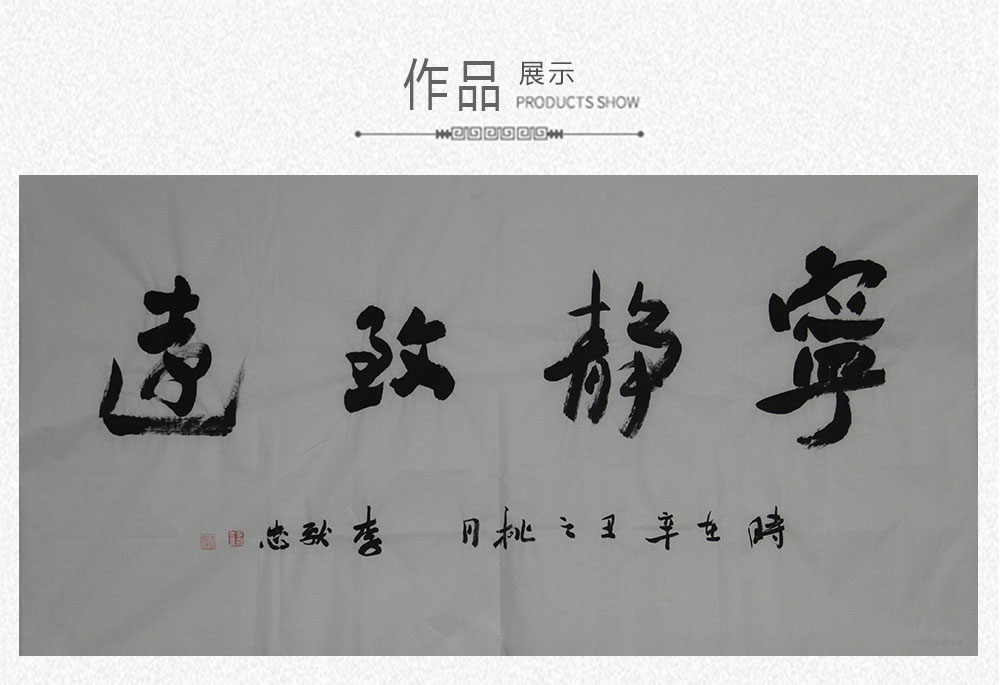 作品 展示
PRODUCTS SHOW
寧静致遠
時在辛丑之桃月 李献忠